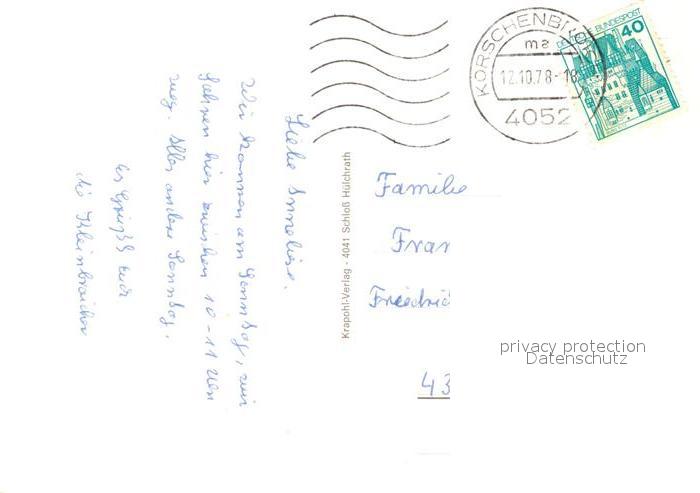 Liebe Anneliese.
Wir kommen am Sonntag, wir
fahren hier zwischen 10-11 Uhr
weg. Alles andere Sonntag.
Es Grüßt euch
die Kleinbroicher
Krapohl-Verlag - 4041 Schloß Hülchrath
KORSCHENBROICH
ma
12.10.78-18
4052
DEUTSCHE BUNDESPOST
40
Familie
Fran
Friedric
43
privacy protection
Datenschutz